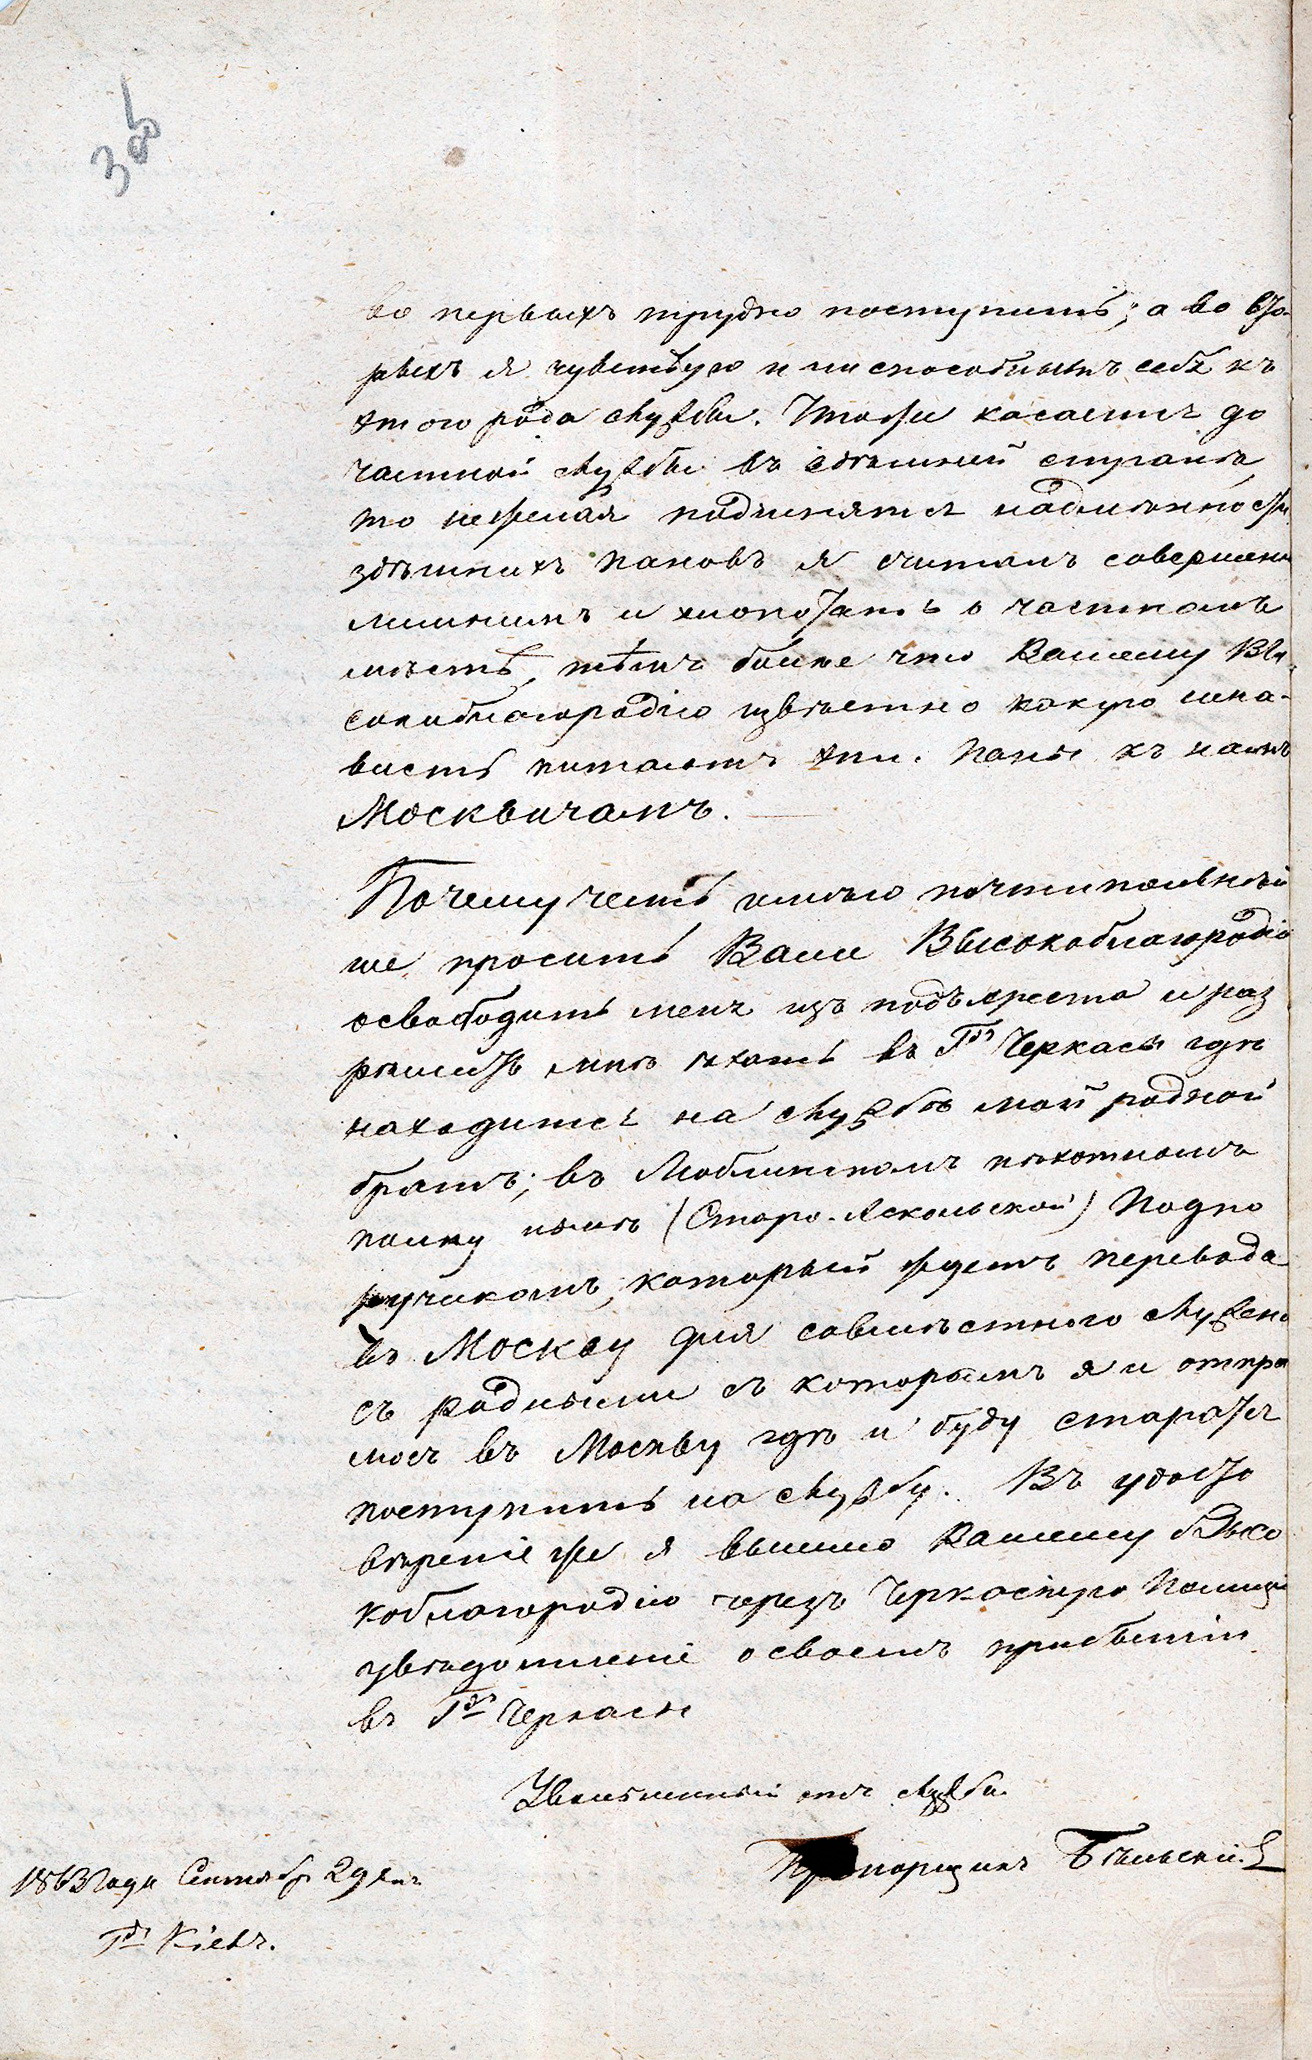 во первыхъ трудно поступить; а во вто-
рыхъ я чувствую не способнымъ себѣ къ
этого рода службы. Чтоже касается до
частной службы въ здѣшней странѣ,
то нежелая подчинятся надмѣнности
здѣшнихъ пановъ я считалъ совершенно
лишнимъ и хлопотать о частномъ
мѣстѣ, тѣмъ более что Вашему Вы-
сокоблагородію извѣстно какую нена-
висть питаютъ эти Паны къ намъ
Москвичамъ.
Почему честь имѣю почтительнѣй
ше просить Ваше Высокоблагородіе
освободить меня изъ подъ ареста и раз
рѣшить мнѣ ѣхать въ Гдъ Черкасы гдѣ
находится на службѣ мой родной
братъ; въ Люблинскомъ пѣхотномъ
полку (Старо-Аскольской) Подпо
ручикомъ, который ждетъ перевода
въ Москву для совмѣстного служенія
съ родными съ которымъ я и отпра
люсь въ Москву гдѣ и буду старатся
поступить на службу. Въ удосто
вѣреніе же я вышлю Вашему Высо
коблагородію черезъ Черкаскую Полицію
увѣдомленіе о своемъ прибытіи
въ Гдъ Черкасы
Уволенный отъ службы
Прапорщикъ Бѣльскій.
1863 года Сентября 29 дня
Гдъ Кіевъ.